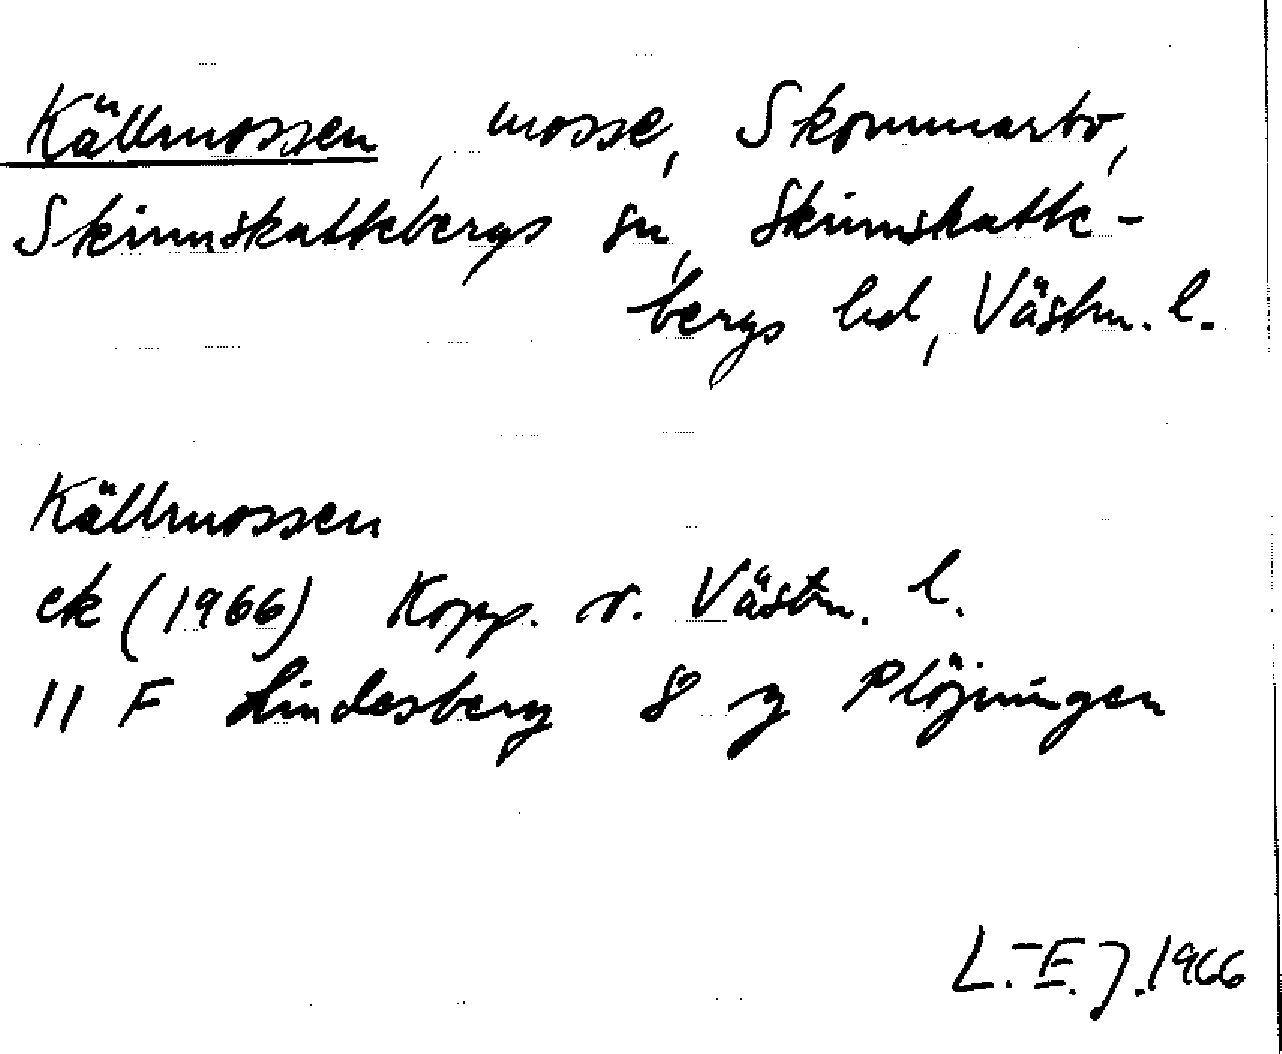 Källmossen, mosse, Skommarbo,
Skinnskattebergs sn, Skinnskatte-
bergs hd, Västm. l.
Källmossen
ek (1966) Kopp. o. Västm. l.
11 F Lindesberg 8 g Plöjningen
L.-E. J. 1966